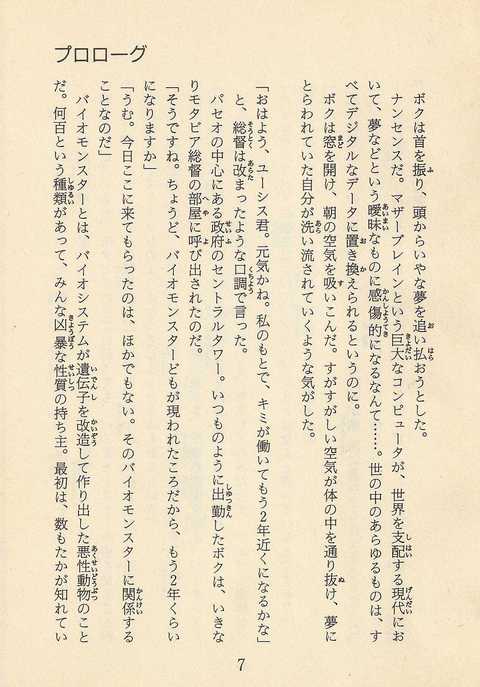 プロローグ
ボクは首を振り、頭からいやな夢を追い払おうとした。
ナンセンスだ。マザーブレインという巨大なコンピュータが、世界を支配する現代にお
いて、夢などという曖昧なものに感傷的になるなんて……。世の中のあらゆるものは、す
べてデジタルなデータに置き換えられるというのに。
ボクは窓を開け、朝の空気を吸いこんだ。すがすがしい空気が体の中を通り抜け、夢に
とらわれていた自分が洗い流されていくような気がした。
「おはよう、ユーシス君。元気かね。私のもとで、キミが働いてもう2年近くになるかな」
と、総督は改まったような口調で言った。
パセオの中心にある政府のセントラルタワー。いつものように出勤したボクは、いきな
りモタビア総督の部屋に呼び出されたのだ。
「そうですね。ちょうど、バイオモンスターどもが現われたころだから、もう2年くらい
になりますか」
「うむ。今日ここに来てもらったのは、ほかでもない。そのバイオモンスターに関係する
ことなのだ」
バイオモンスターとは、バイオシステムが遺伝子を改造して作り出した悪性動物のこと
だ。何百という種類があって、みんな凶暴な性質の持ち主。最初は、数もたかが知れてい
7